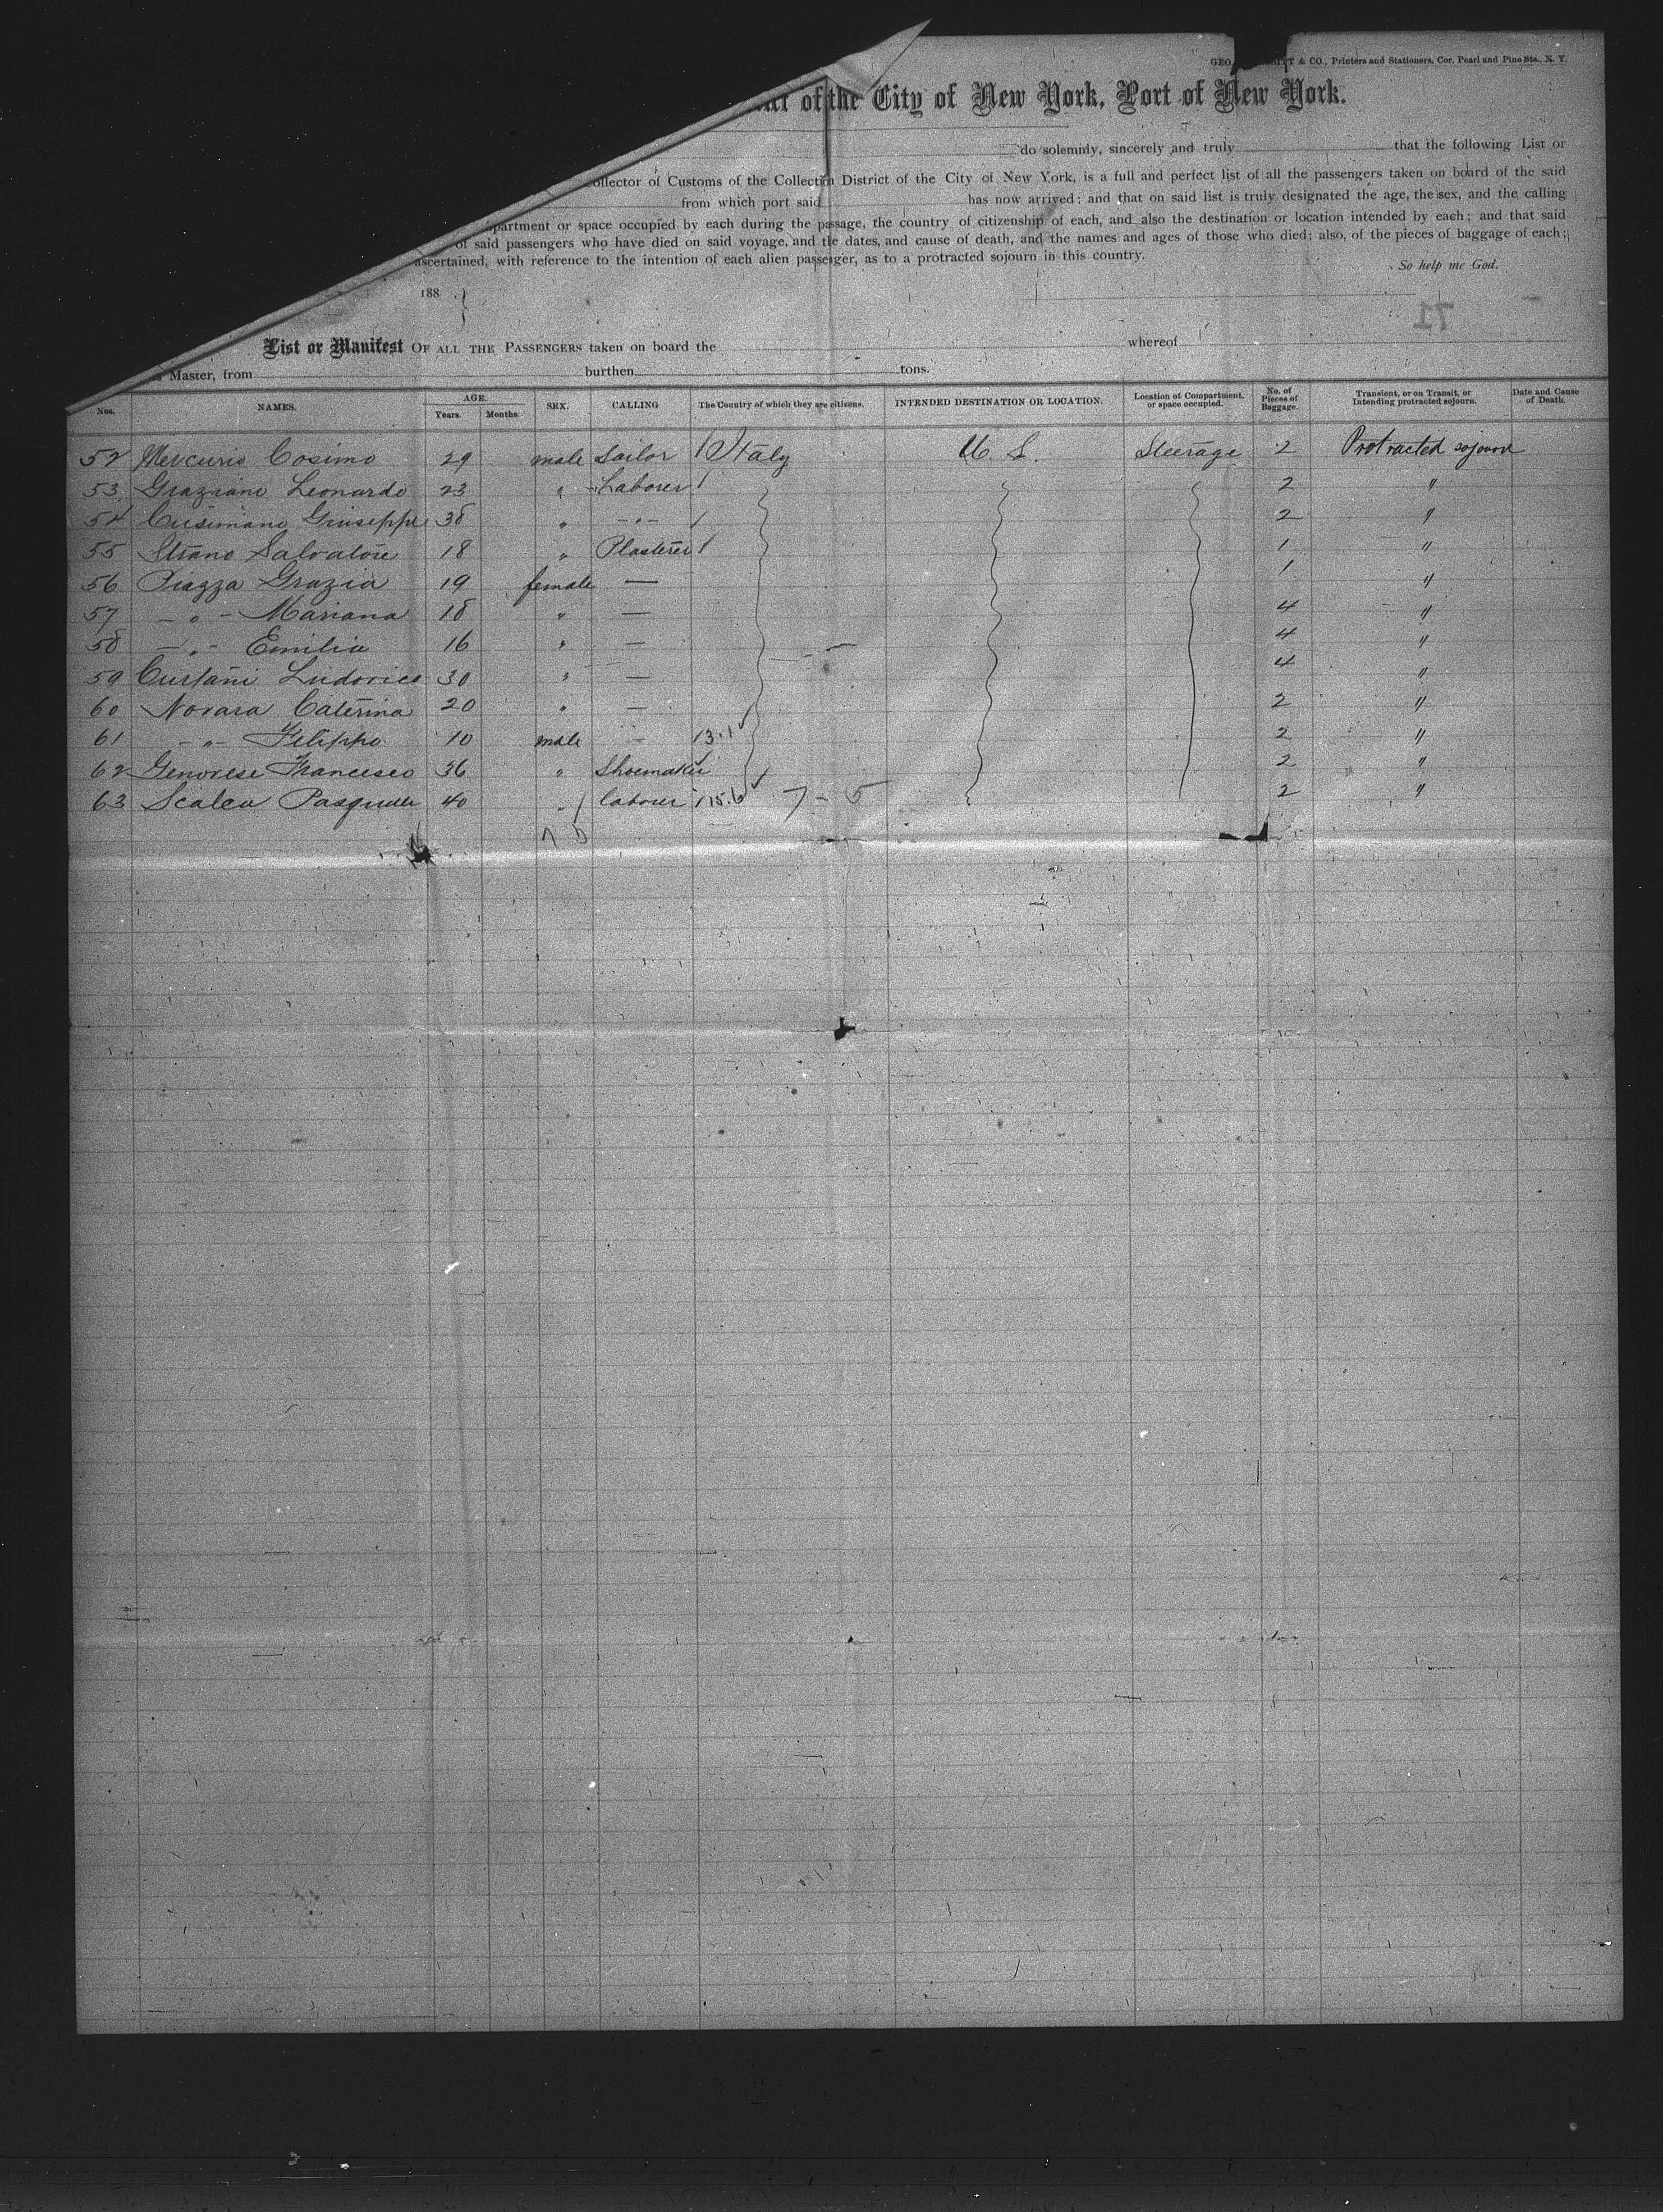 & CO., Printers and Stationers, Cor. Pearl and Pine Sts., N. Y.
of the City of New York, Port of New York.
do solemnly, sincerely and truly that the following List or
Collector of Customs of the Collection District of the City of New York, is a full and perfect list of all the passengers taken on board of the said
from which port said has now arrived; and that on said list is truly designated the age, the sex, and the calling
partment or space occupied by each during the passage, the country of citizenship of each, and also the destination or location intended by each; and that said
of said passengers who have died on said voyage, and the dates, and cause of death, and the names and ages of those who died; also, of the pieces of baggage of each;
ascertained, with reference to the intention of each alien passenger, as to a protracted sojourn in this country.
So help me God.
188 }
71
List or Manifest OF ALL THE PASSENGERS taken on board the whereof
is Master, from burthen tons.
Nos. NAMES. AGE. Years. Months. SEX. CALLING The Country of which they are citizens. INTENDED DESTINATION OR LOCATION. Location of Compartment, or space occupied. No. of Pieces of Baggage. Transient, or on Transit, or Intending protracted sojourn. Date and Cause of Death.
52 Mercurio Cosimo 29 male Sailor / Italy U. S. Steerage 2 Protracted sojourn
53 Graziano Leonardo 23 " Laborer / 2 "
54 Cusimano Giuseppe 38 " -"- / 2 "
55 Strano Salvatore 18 " Plasterer / 1 "
56 Piazza Grazia 19 female — 1 "
57 -"- Mariana 18 " — 4 "
58 -"- Emilia 16 " — 4 "
59 Curtani Ludovica 30 " — 4 "
60 Novara Caterina 20 " — 2 "
61 -"- Filippo 10 male — 13.1 ✓ 2 "
62 Genovese Francesco 36 " Shoemaker 2 "
63 Scalea Pasquale 40 " labour 115.6 ✓ 7 - 5 2 "
7 5